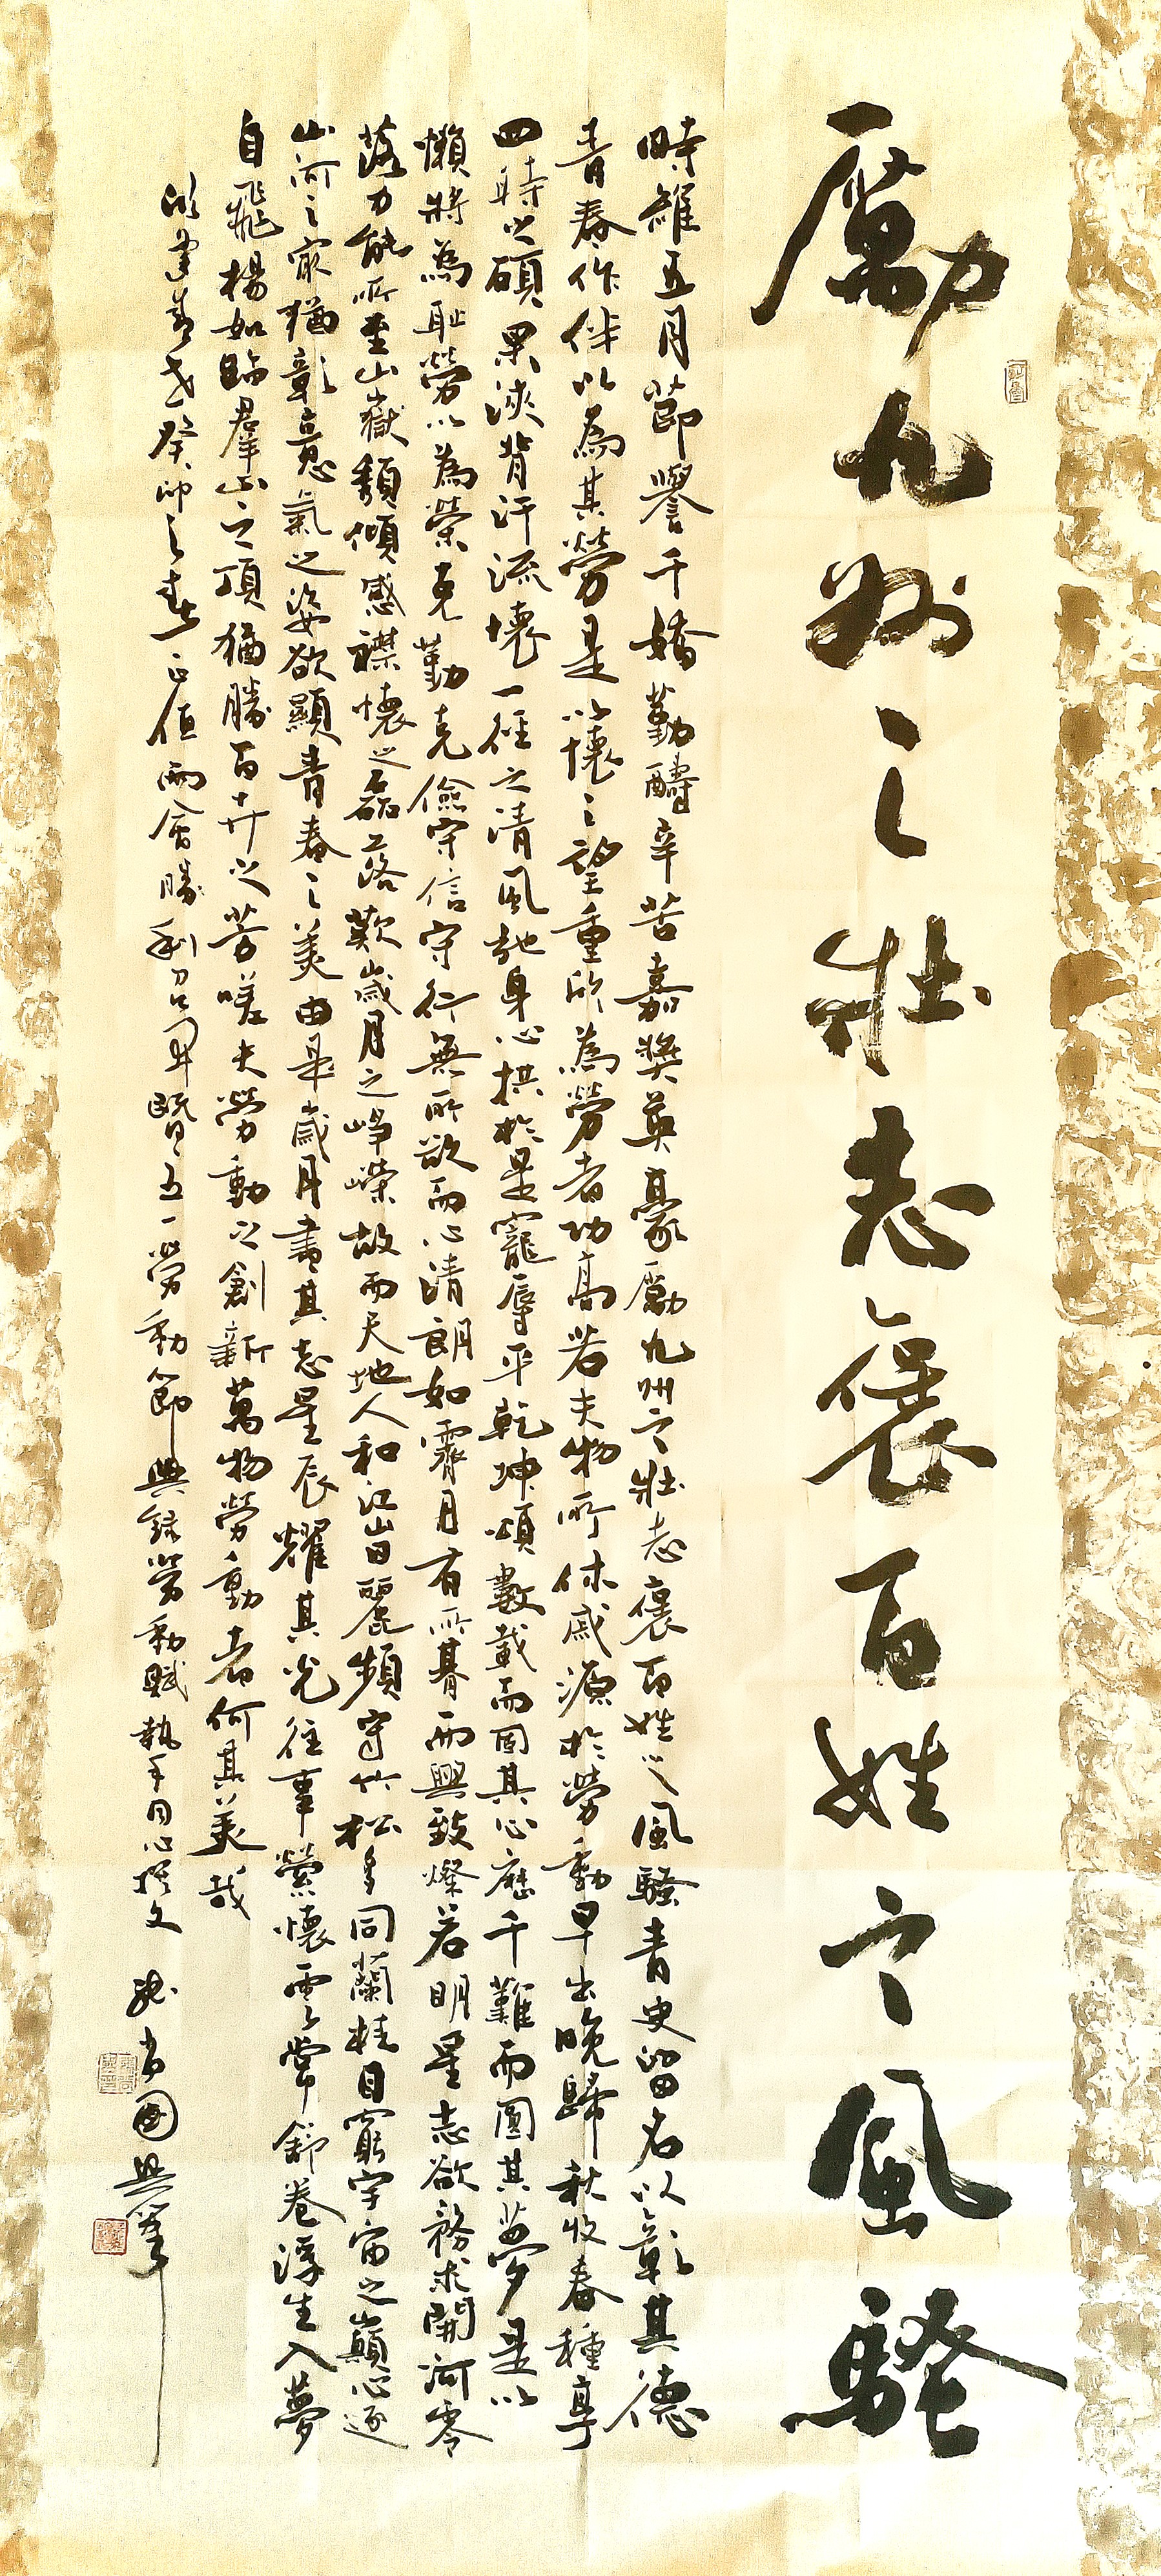 勵九州之壯志襃百姓之風騷
時維五月節譽千嬌勤疇辛苦嘉獎英豪勵九州之壯志襃百姓之風騷青史留名以彰其德
青春作伴以為其勞是以懷之望重欣為勞者功高若夫物所休戚源於勞動早出晚歸秋收春種享
四時之碩果浹背汗流懷一徑之清風馳身心拱於是寵辱平乾坤頌數載而固其心應千難而圓其夢是以
懶將為恥勞以為榮克勤克儉守信守行無所欲而心清朗如霽月有所暮而興致燦若明星志欲務求開河零
落力能所至山嶽頹傾感襟懷之磊落歎歲月之崢嶸故而天地人和江山日麗頻守竹松多同蘭桂目窮宇宙之巔心逐
山河之寂猶彰意氣之姿欲顯青春之美由是歲月書其志星辰耀其光往事縈懷雲常舒卷浮生入夢
自飛楊如臨群山之頂猶勝百卉之芳嗟夫勞動之創新萬物勞動者何其美哉
癸卯之春正值兩會勝利召開暨五一勞動節興錄勞動賦執手同心撰文
國興筆